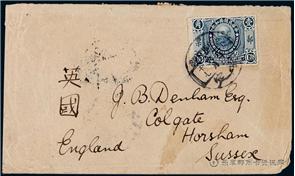 英
國
J. B. Denham Esq.
Colgate
Horsham
Sussex
England